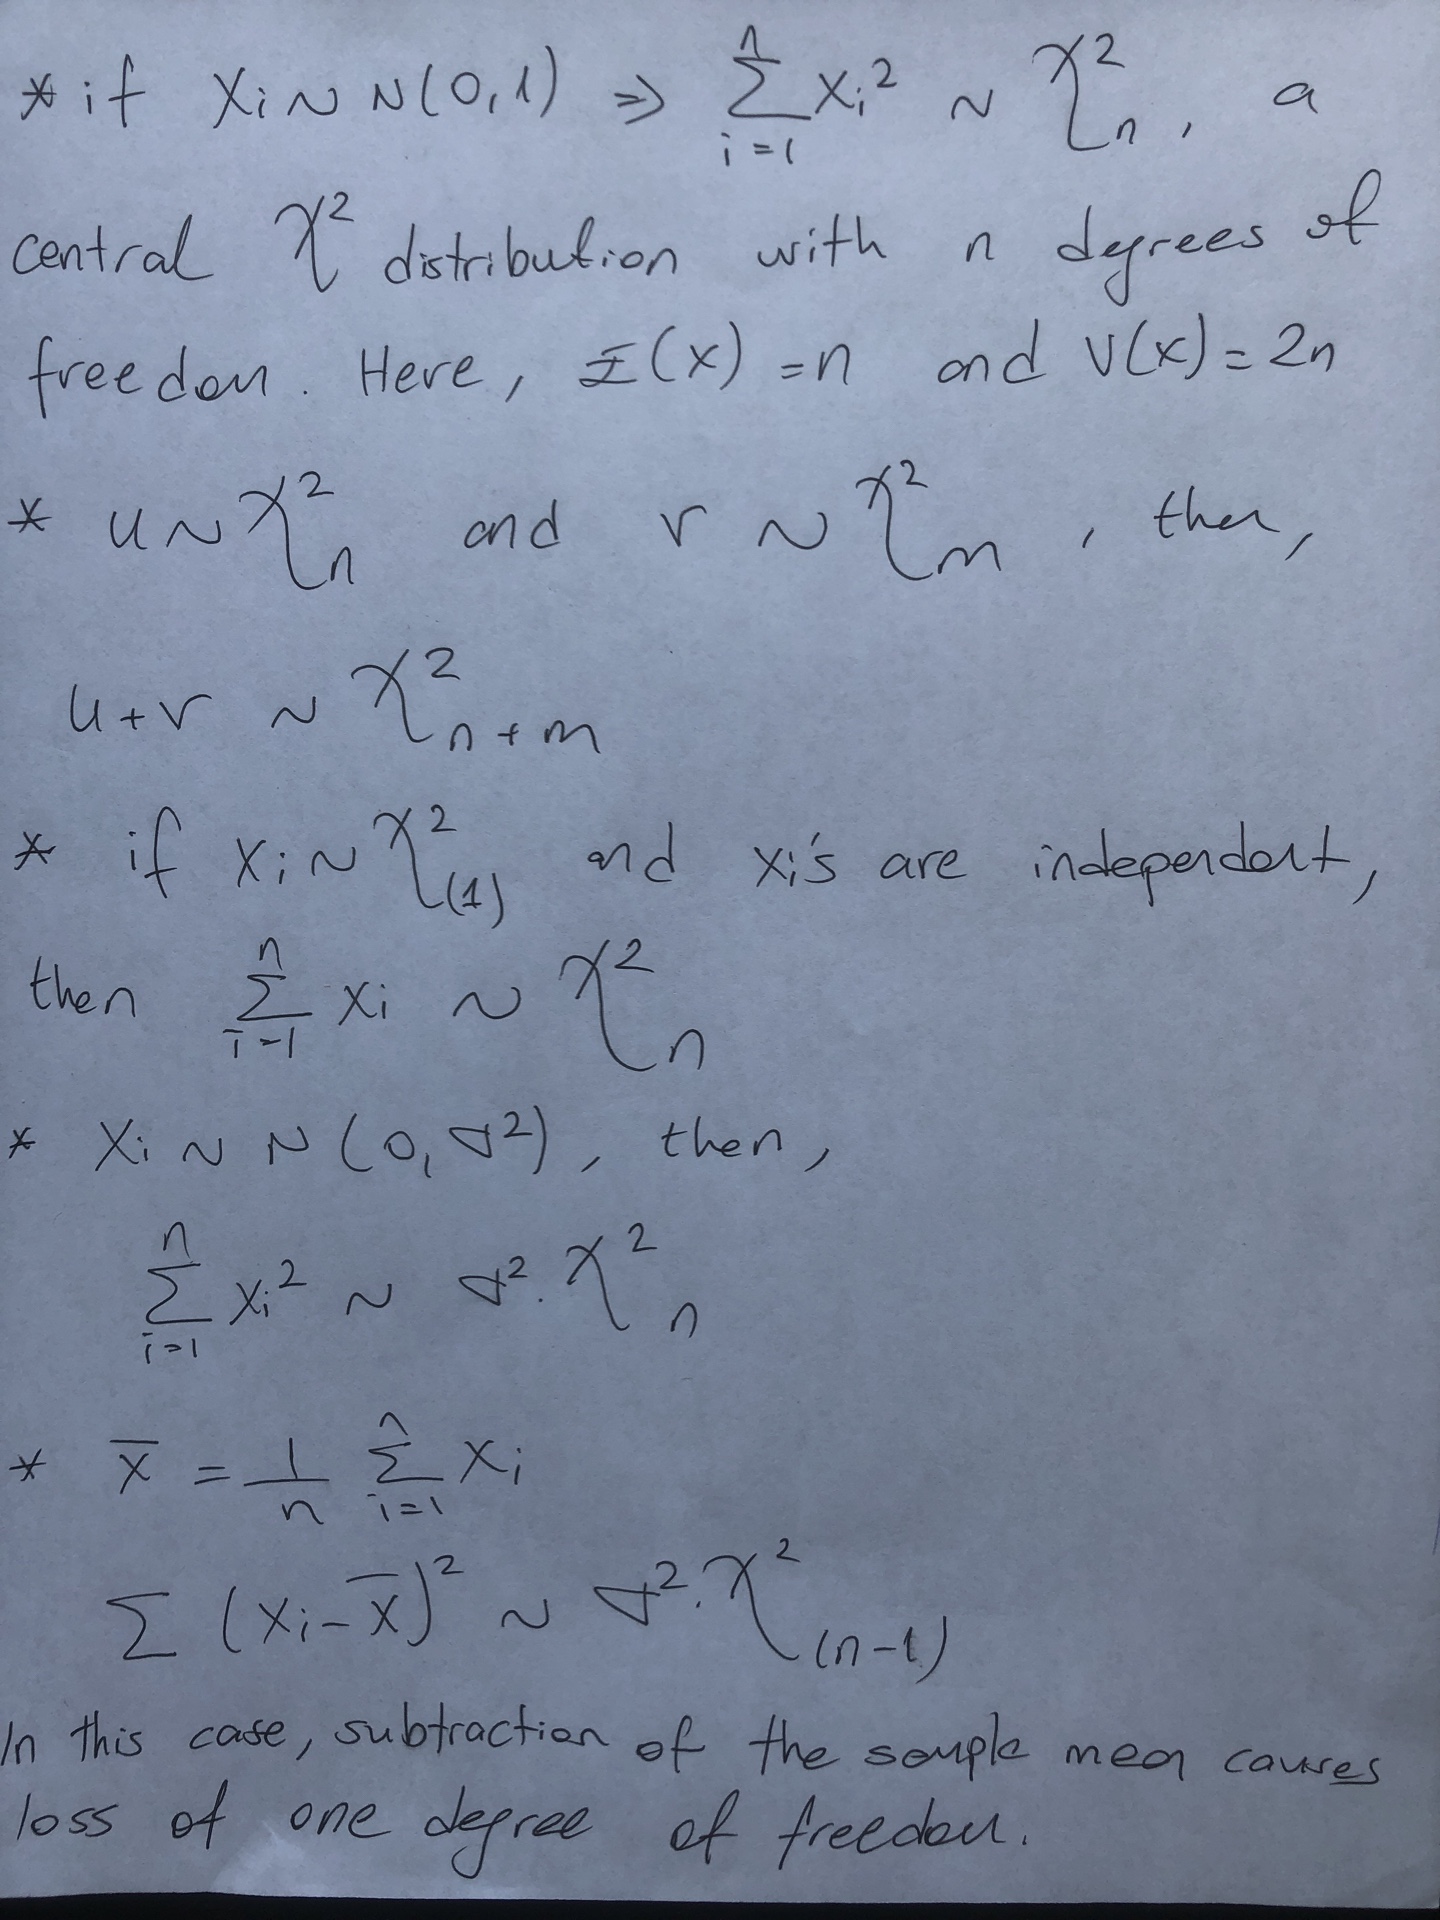 * if Xi ~ N(0,1) => Σ_{i=1}^{n} Xi² ~ χ²_n, a
central χ² distribution with n degrees of
freedom. Here, E(x) = n and V(x) = 2n
* u ~ χ²_n and v ~ χ²_m, then,
u+v ~ χ²_{n+m}
* if Xi ~ χ²_(1) and xi's are independent,
then Σ_{i=1}^{n} Xi ~ χ²_n
* Xi ~ N(0, σ²), then,
Σ_{i=1}^{n} Xi² ~ σ². χ²_n
* x̄ = 1/n Σ_{i=1}^{n} Xi
Σ (Xi - x̄)² ~ σ². χ²_(n-1)
In this case, subtraction of the sample mean causes
loss of one degree of freedom.